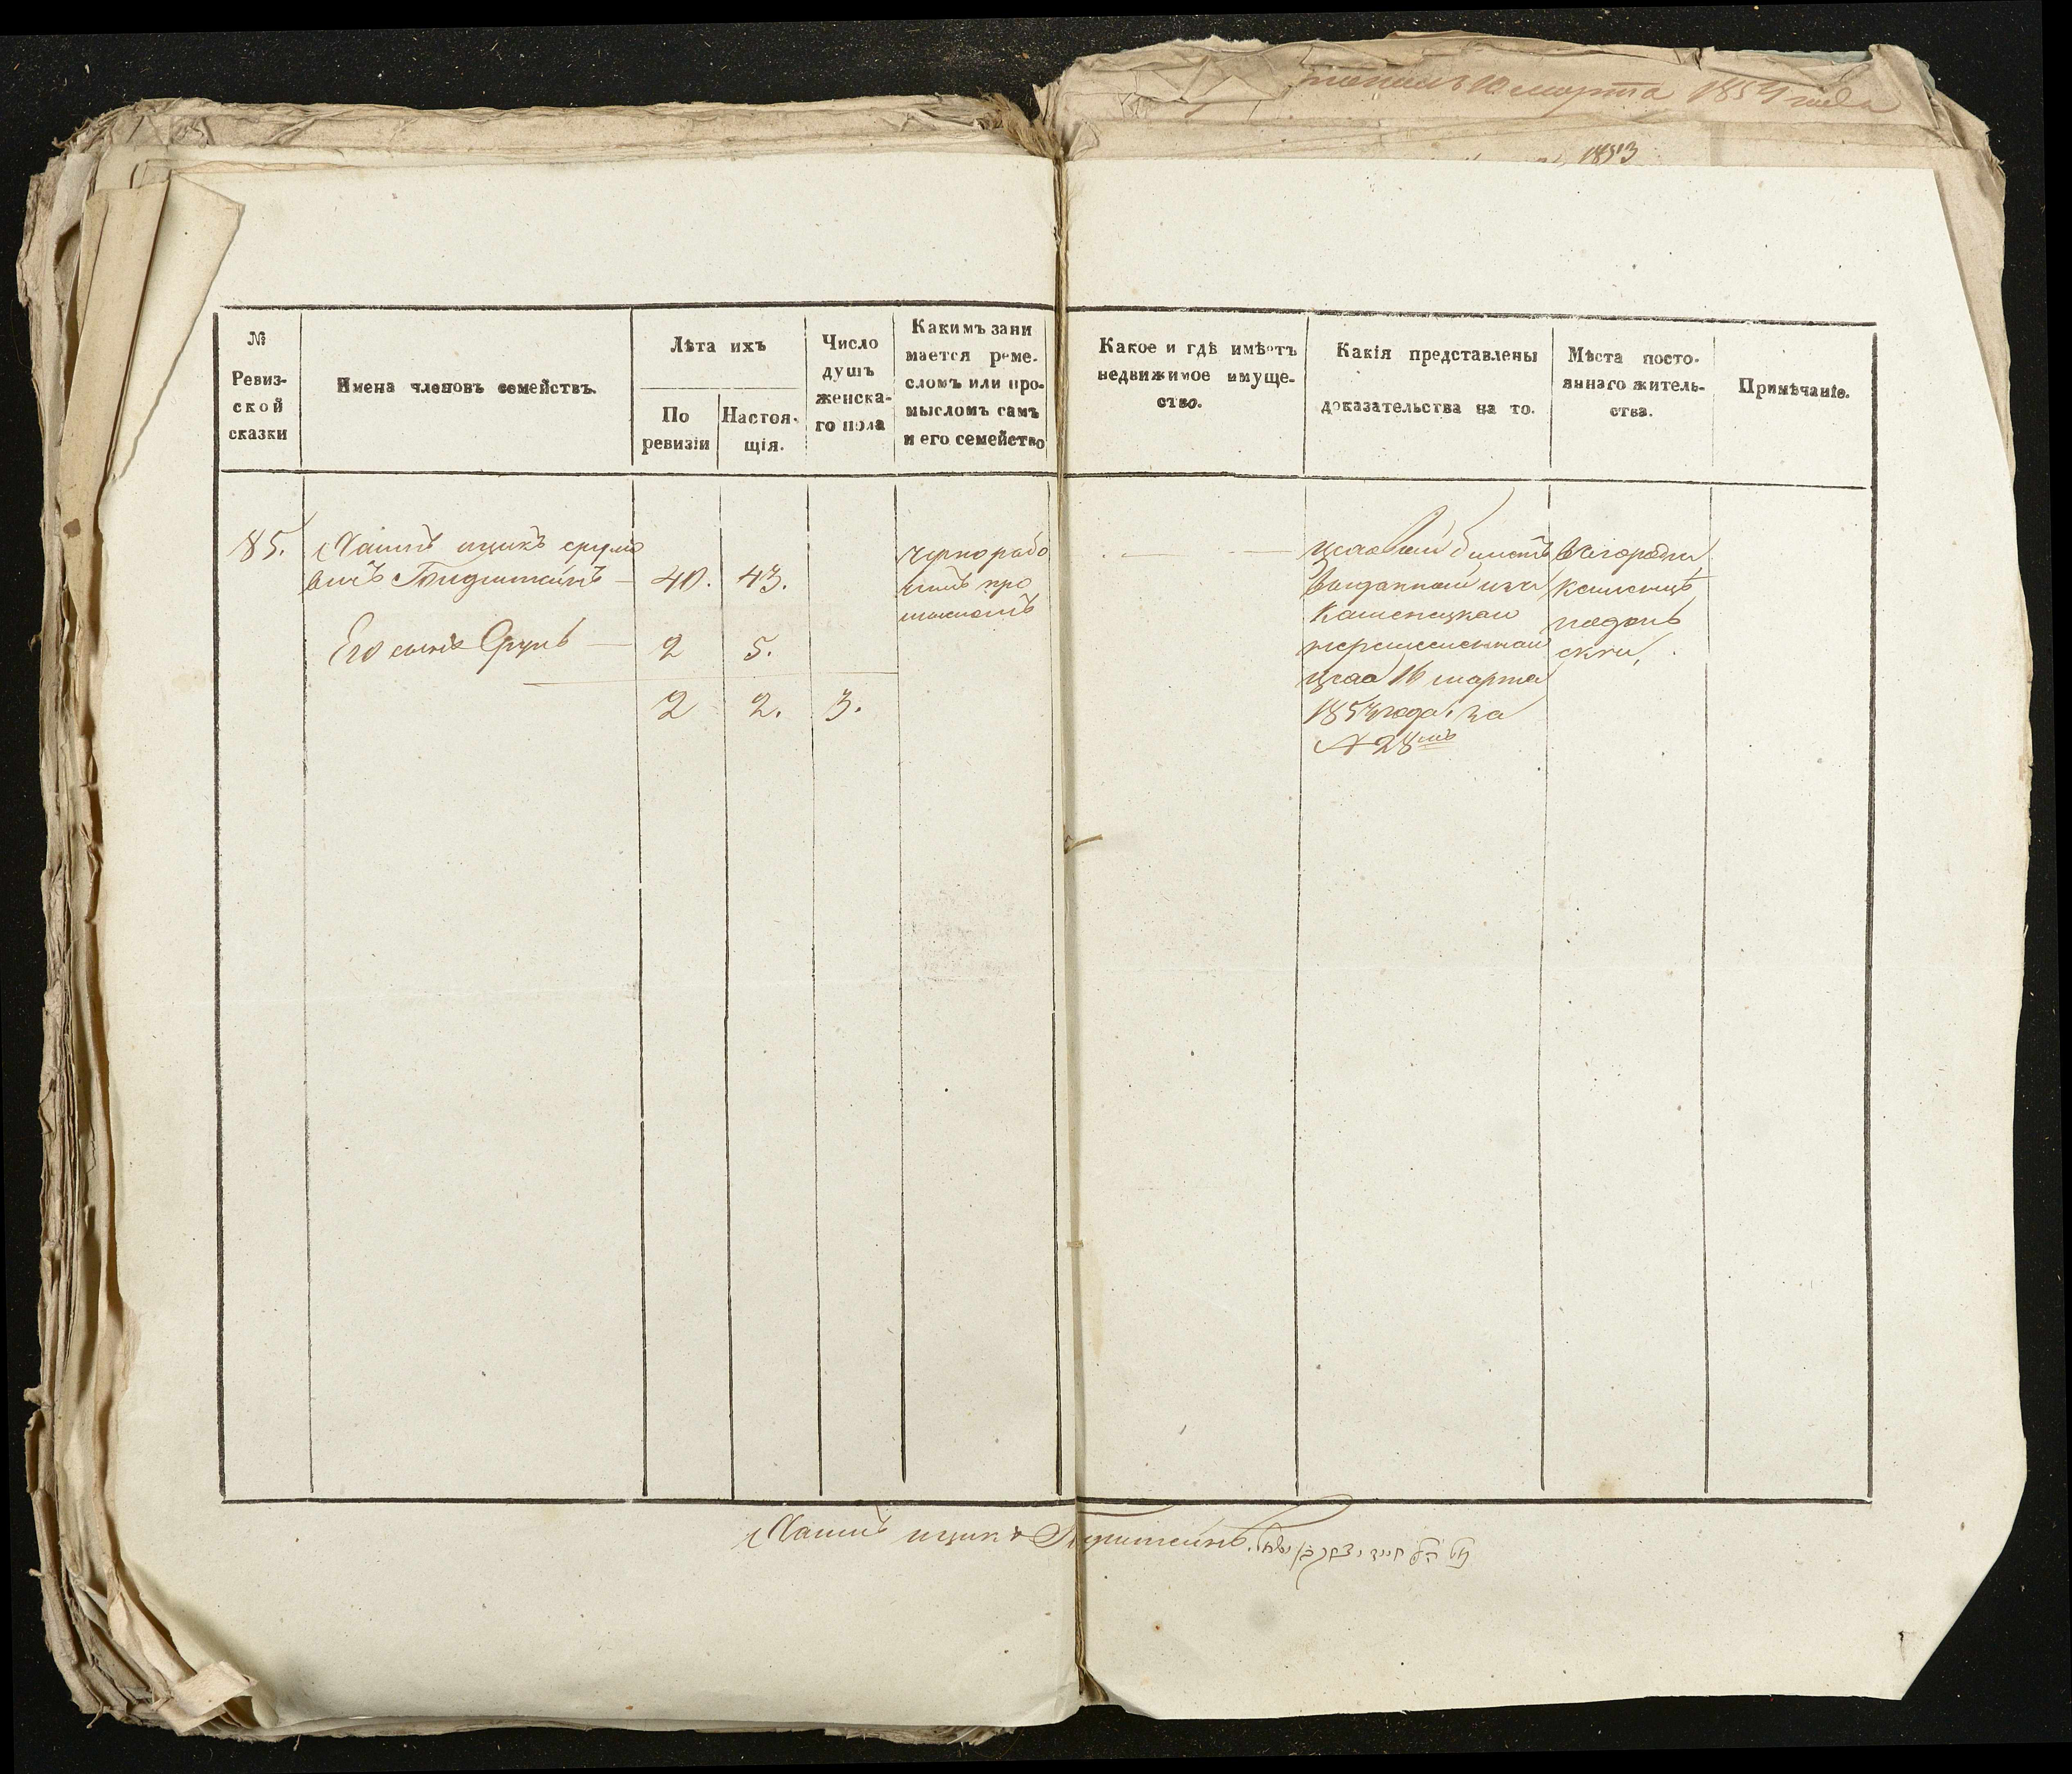 марта 1854 года
1853
№
Ревиз-
ской
сказки
Имена членовъ семействъ.
Лѣта ихъ
По
ревизіи
Настоя-
щія.
Число
душъ
женска-
го пола
Какимъ зани
мается реме-
сломъ или про-
мысломъ самъ
и его семейство
Какое и гдѣ имѣетъ
недвижимое имуще-
ство.
Какія представлены
доказательства на то.
Мѣста посто-
яннаго житель-
ства.
Примѣчаніе.
85.
Хаимъ ицикъ срулю
вичъ
40.
43.
Его сынъ Срулъ
2
5.
2
2.
3.
чернорабо
чимъ про
мысломъ
цеховый билетъ
выданный изъ
Каменецкаго
ремесленнаго
цеха 16 марта
1854 года за
№ 28мъ
в городѣ
Каменцѣ
подоль
скѣ,
Хаимъ ицикъ